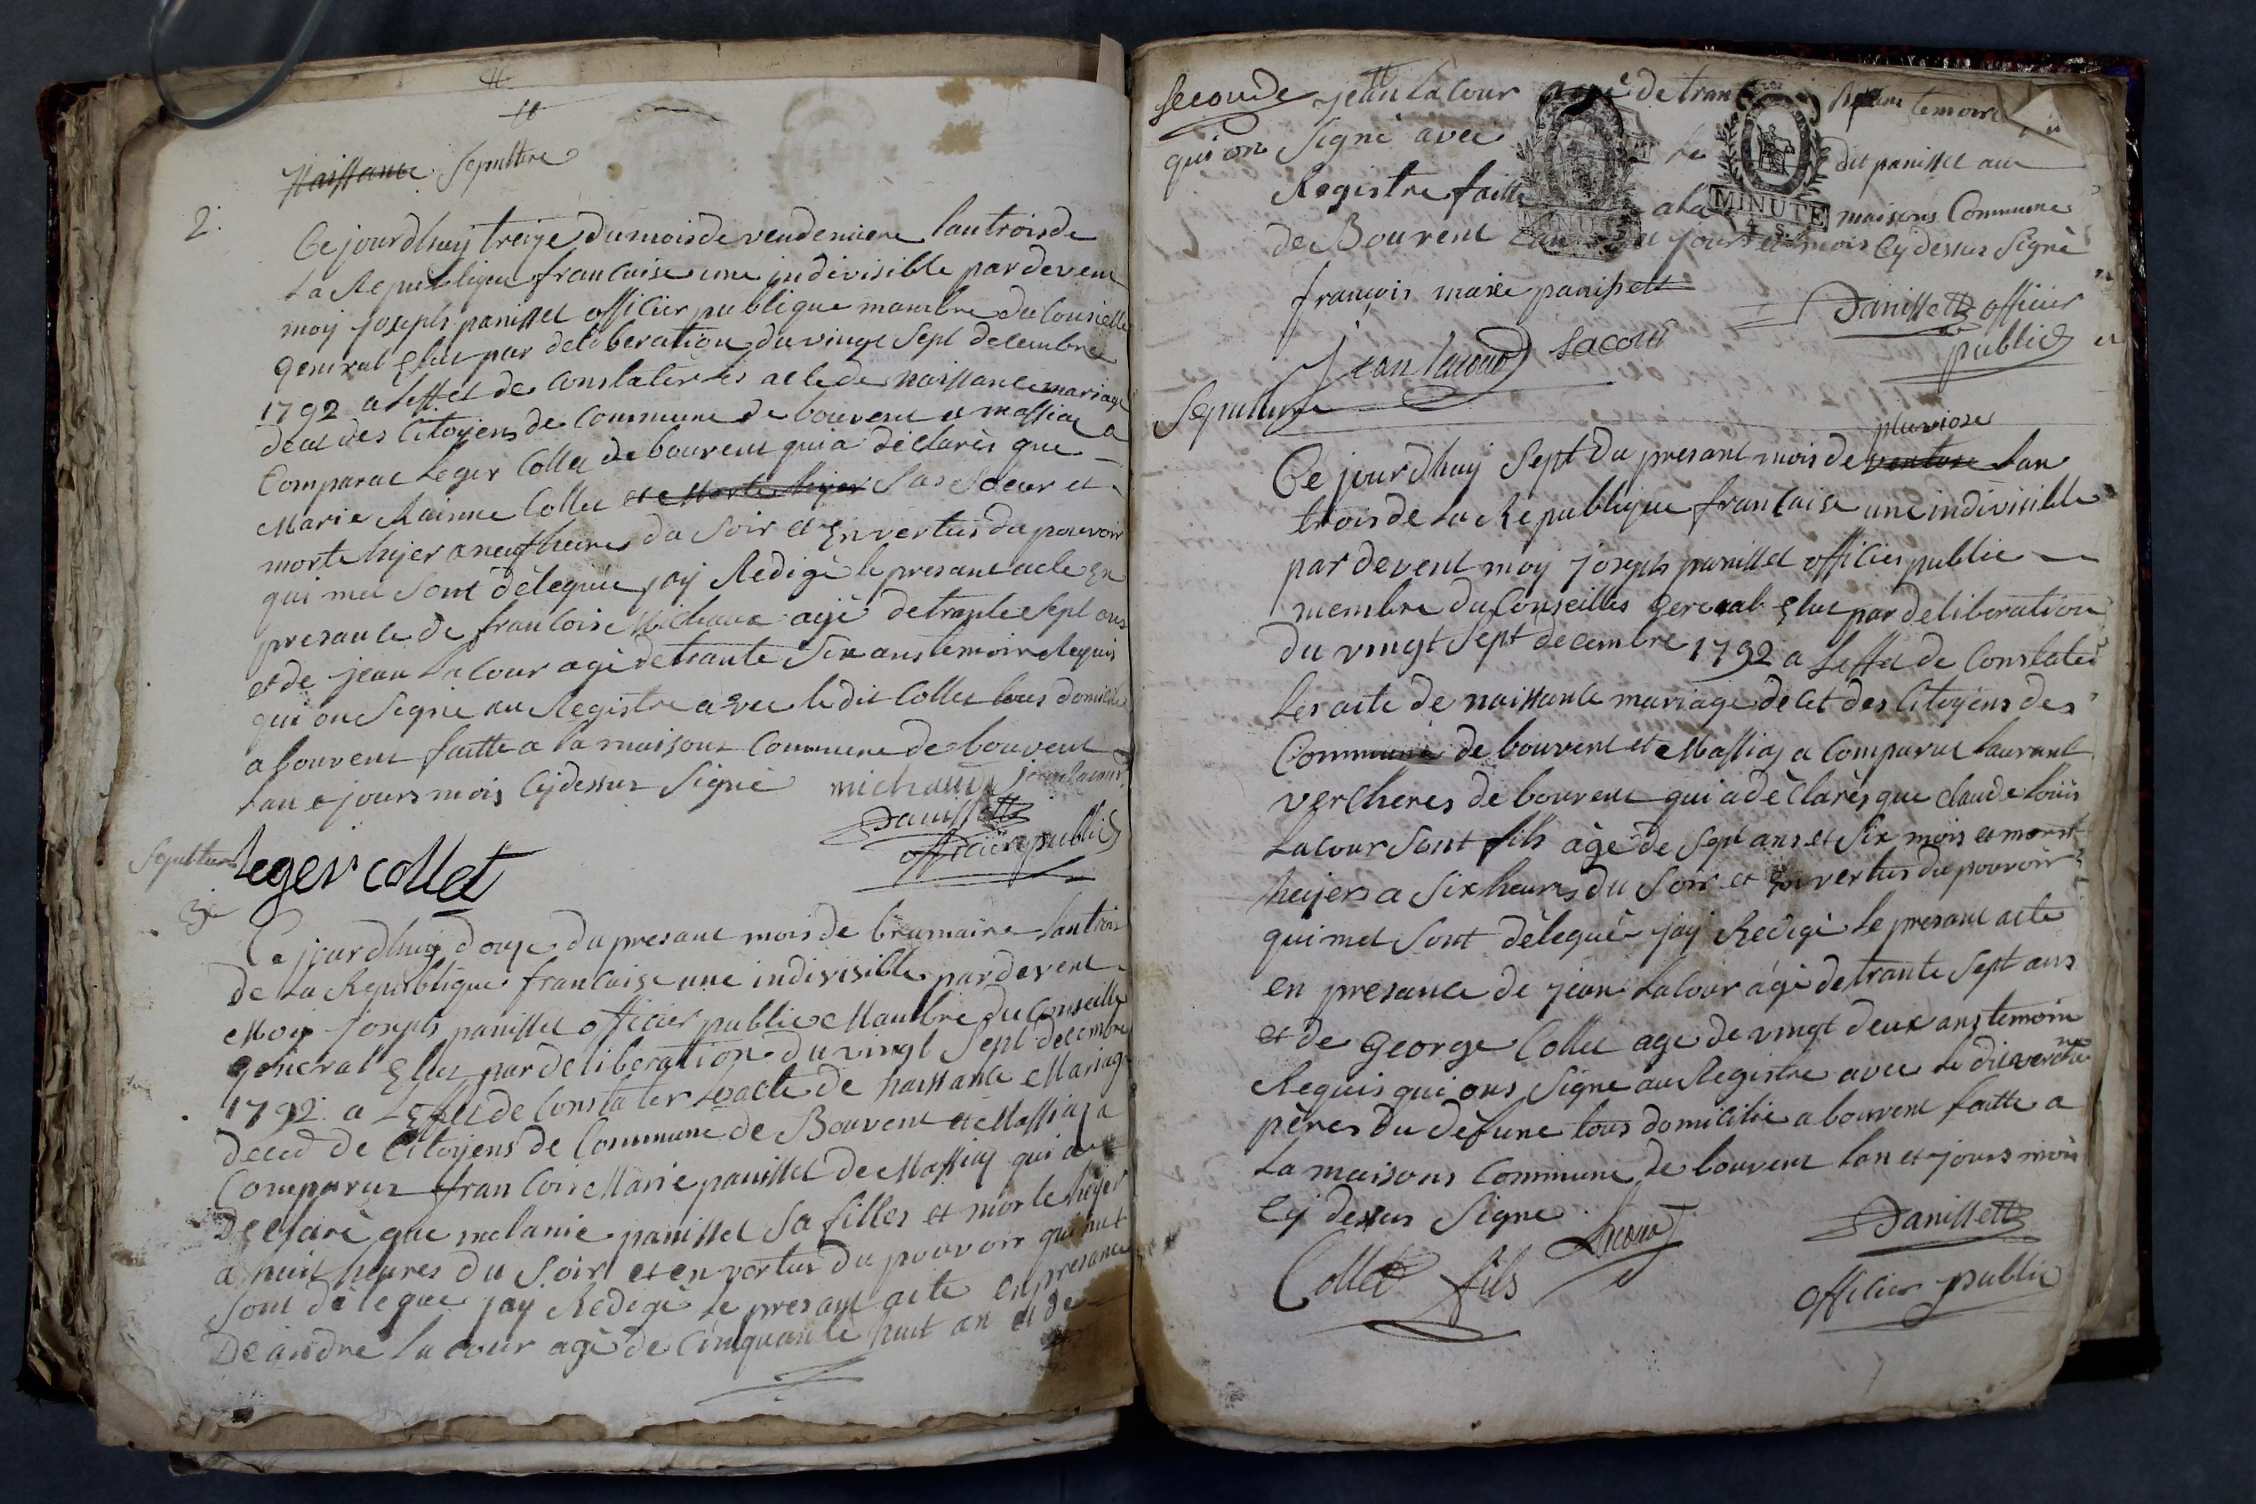 Naissance Sepulture
2.
Ce jourdhuy treize du mois de vendemiere lan trois de
La Republique francaise une indivisible pardevent
moy joseph panisset officier publique mambre du Conseille
general Elut par deliberation du vingt Sept decembre
1792 a Leffet de Constater les acte de naissance mariage
decet des Citoyens de Commune de bouvent et Massiac a
Comparut Leger Collet de bouvent qui a déclarés que
Marie Collet et Morte hejer Sa Soeur et
morte hejer a neuf heures du Soir et En vertus du pouvoir
qui met Sont déleguée jay Redigé le presant acte En
presance de francoise Michaux agé de trante Sept ans
et de jean Lacour agé de trante Six ans temoin Requis
qui on Signé au Registre avec ledit Collet tous domicilié
a bouvent faitte a la maisons Commune de bouvent
Lan e jours mois Cy dessus Signé michaux jean lacour
Panissett
officier public
Sepulture Leger collet
3e
Ce jourdhuy douze du presant mois de brumaire Lan trois
de La Republique francaise une indivisible pardevent
Moy joseph panisset officier public Mambre du Conseille
general Elut par deliberation du vingt Sept decembre
1792 a Leffet de Constater Les acte de naissance Mariage
deced de Citoyens de Commune de Bouvent et Massiaz a
Comparut francois Marie panisset de Massiaz qui a
Declaré que melanie panisset Sa filles et morte hejer
a huit heures du Soir et en vertus du pouvoir qui met
Sont déleguée jay Redigé Le presant acte En presance
De andre Lacour agé de Cinquante huit an et de
seconde jean Lacour agé de trante temoins
qui on Signé avec Le dit panisset au
Registre faitte a la maisons Commune
MINUTE
MINUTE
4. S.
de Bouvent Lan et jours et mois Cy dessus Signé
françois marie panisset
Panissett officier
public
Jean lacour Lacour
Sepulture
pluviose
Ce jourdhuy Sept du presant mois de ventose Lan
trois de La Republique francaise une indivisible
par devent moy joseph panisset officier public
membre du Conseilles general Elut par deliberation
du vingt Sept decembre 1792 a Leffet de Constater
Les acte de naissance mariage decet des Citoyens des
Commune de bouvent et Massiaz a Comparut Laurant
vercheres de bouvent qui a déclarés que Claude Louis
Lacour Sont fils agé de Sept ans et Six mois et morst
heyers a Six heures du Soir et En vertus du pouvoir
qui met Sont délegué jay Redigé Le presant acte
en presance de jean Lacour agé de trante Sept ans
et de George Collet age de vingt deux ans temoin
Requis qui ons Signe au Registre avec Le dit verchere
pères du défunt tous domicilié a bouvent faitte a
La maisons Commune de bouvent Lan et jours mois
Cy dessus Signe
Lacour
Panissett
Collet fils
officier public